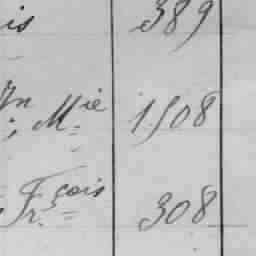 is 389
Jn
; M.ie 1508
Fr.çois 308